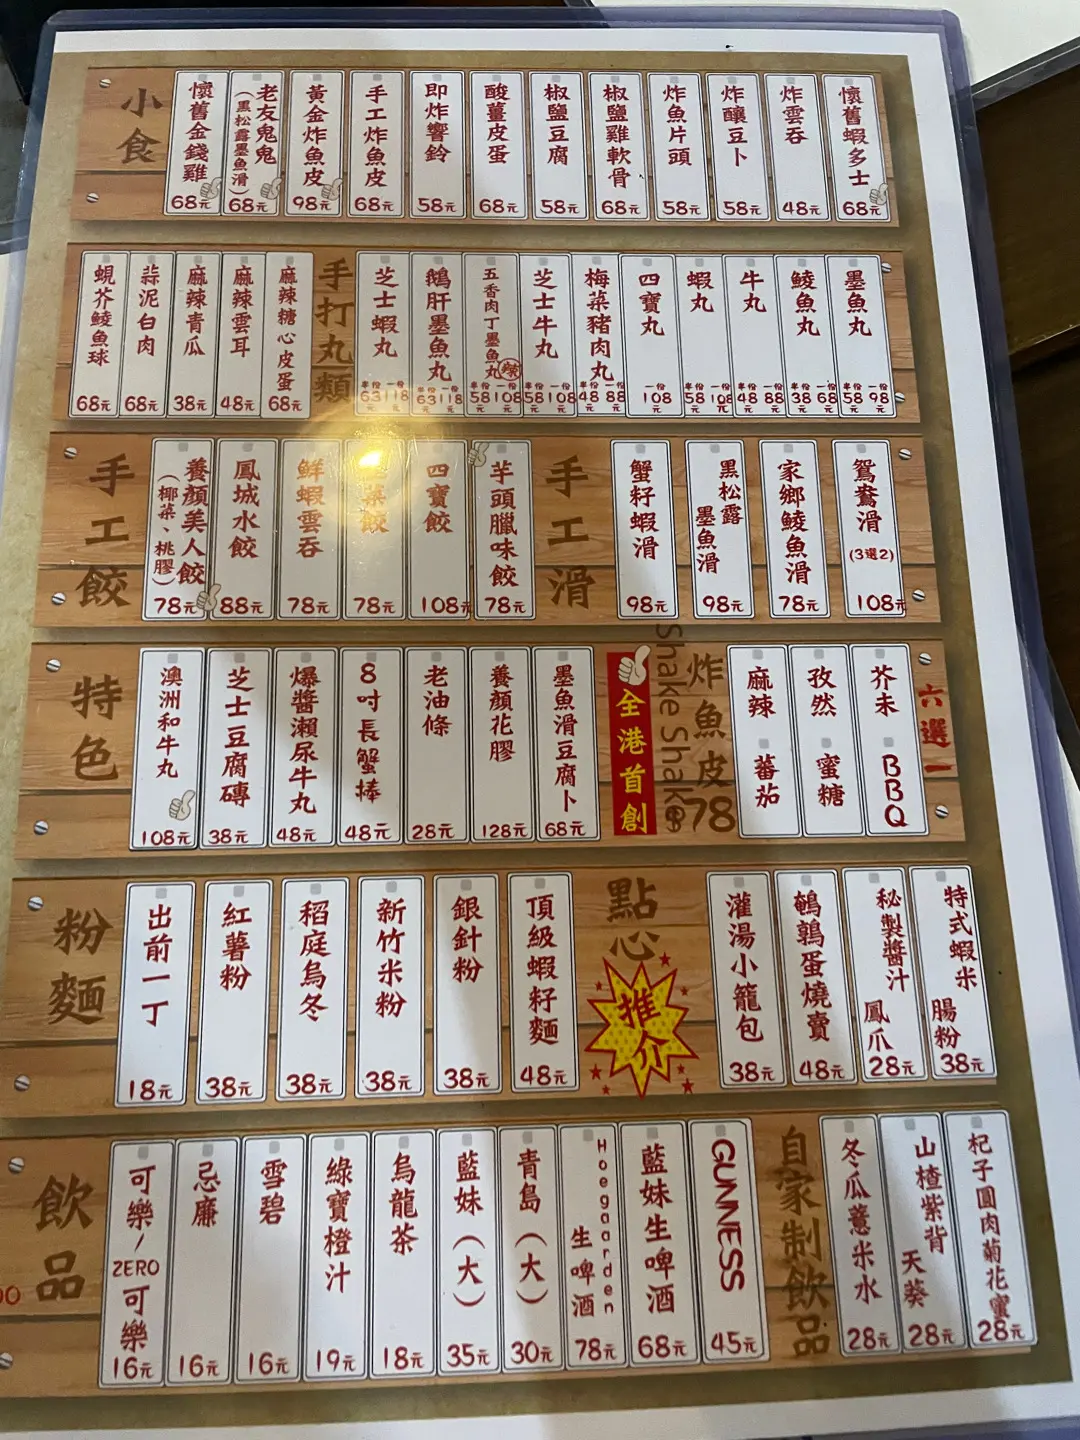 小食
懷舊金錢雞 68元
老友鬼鬼 (黑松露墨魚滑) 68元
黃金炸魚皮 98元
手工炸魚皮 68元
即炸響鈴 58元
酸薑皮蛋 68元
椒鹽豆腐 58元
椒鹽雞軟骨 68元
炸魚片頭 58元
炸釀豆卜 58元
炸雲吞 48元
懷舊蝦多士 68元
蜆芥鯪魚球 68元
蒜泥白肉 68元
麻辣青瓜 38元
麻辣雲耳 48元
麻辣糖心皮蛋 68元
手打丸類
芝士蝦丸 半份63元 一份118元
鵝肝墨魚丸 半份63元 一份118元
五香肉丁墨魚丸 辣 半份58元 一份108元
芝士牛丸 半份58元 一份108元
梅菜豬肉丸 半份48元 一份88元
四寶丸 一份108元
蝦丸 半份58元 一份108元
牛丸 半份48元 一份88元
鯪魚丸 半份38元 一份68元
墨魚丸 半份58元 一份98元
手工餃
養顏美人餃 (椰菜、桃膠) 78元
鳳城水餃 88元
鮮蝦雲吞 78元
菜餃 78元
四寶餃 108元
芋頭臘味餃 78元
手工滑
蟹籽蝦滑 98元
黑松露墨魚滑 98元
家鄉鯪魚滑 78元
鴛鴦滑 (3選2) 108元
特色
澳洲和牛丸 108元
芝士豆腐磚 38元
爆醬瀨尿牛丸 48元
8吋長蟹捧 48元
老油條 28元
養顏花膠 128元
墨魚滑豆腐卜 68元
全港首創
Shake Shake
炸魚皮78
麻辣 蕃茄
孜然 蜜糖
芥末 BBQ
六選一
粉麵
出前一丁 18元
紅薯粉 38元
稻庭烏冬 38元
新竹米粉 38元
銀針粉 38元
頂級蝦籽麵 48元
點心
推介
灌湯小籠包 38元
鵪鶉蛋燒賣 48元
秘製醬汁鳳爪 28元
特式蝦米腸粉 38元
飲品
可樂/ZERO可樂 16元
忌廉 16元
雪碧 16元
綠寶橙汁 19元
烏龍茶 18元
藍妹(大) 35元
青島(大) 30元
Hoegaarden 生啤酒 78元
藍妹生啤酒 68元
GUINNESS 45元
自家制飲品
冬瓜薏米水 28元
山楂紫背天葵 28元
杞子圓肉菊花蜜 28元